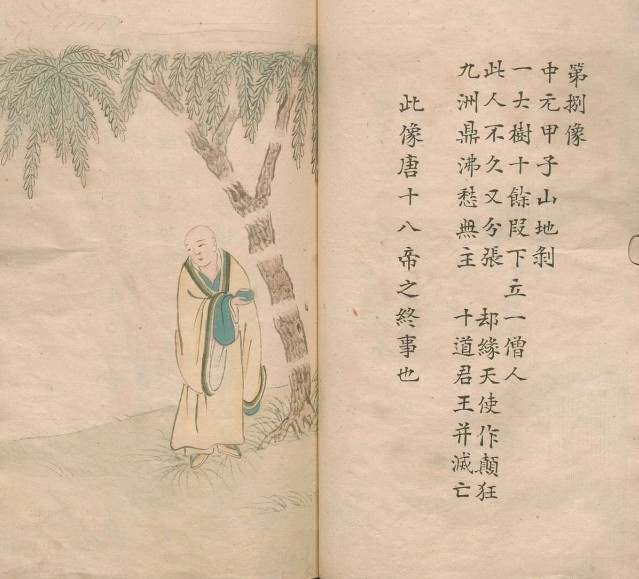 第捌像
中元甲子山地剥
一大樹十餘段下立一僧人
此人不久又分張　却緣天使作顛狂
九洲鼎沸愁無主　十道君王并滅亡
此像唐十八帝之終事也